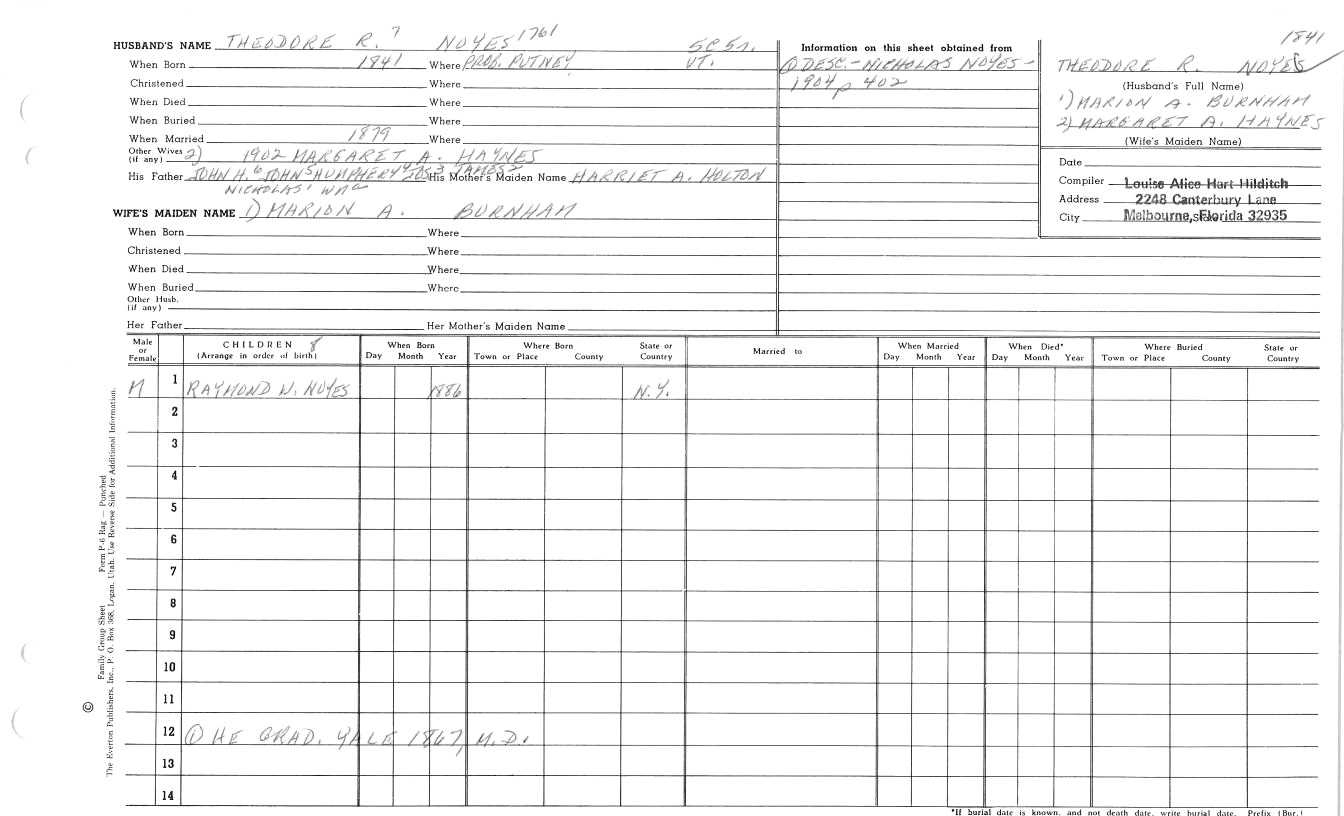 1841
HUSBAND'S NAME THEODORE R. 7 NOYES 1761 5C5n.
When Born 1841 Where PROB. PUTNEY VT.
Christened Where
When Died Where
When Buried Where
When Married 1879 Where
Other Wives (if any) 2) 1902 MARGARET A. HAYNES
His Father JOHN H. 6 JOHN 5 HUMPHERY 4 JOS 3 JAMES 2 His Mother's Maiden Name HARRIET A. HOLTON
NICHOLAS 1 WM
WIFE'S MAIDEN NAME 1) MARION A. BURNHAM
When Born Where
Christened Where
When Died Where
When Buried Where
Other Husb. (if any)
Her Father Her Mother's Maiden Name
Information on this sheet obtained from
① DESC. - NICHOLAS NOYES -
1904 p 402
THEODORE R. NOYES
(Husband's Full Name)
1) MARION A. BURNHAM
2) MARGARET A. HAYNES
(Wife's Maiden Name)
Date
Compiler Louise Alice Hart Hilditch
Address 2248 Canterbury Lane
City Melbourne, Florida 32935
Male or Female CHILDREN 8 (Arrange in order of birth) When Born Day Month Year Where Born Town or Place County State or Country Married to When Married Day Month Year When Died* Day Month Year Where Buried Town or Place County State or Country
M 1 RAYMOND W. NOYES 1886 N.Y.
2
3
4
5
6
7
8
9
10
11
12 ① HE GRAD. YALE 1867, M.D.
13
14
*If burial date is known, and not death date, write burial date. Prefix (Bur.)
Family Group Sheet Form P-6 Rag — Punched
© The Everton Publishers, Inc., P. O. Box 368, Logan, Utah. Use Reverse Side for Additional Information.